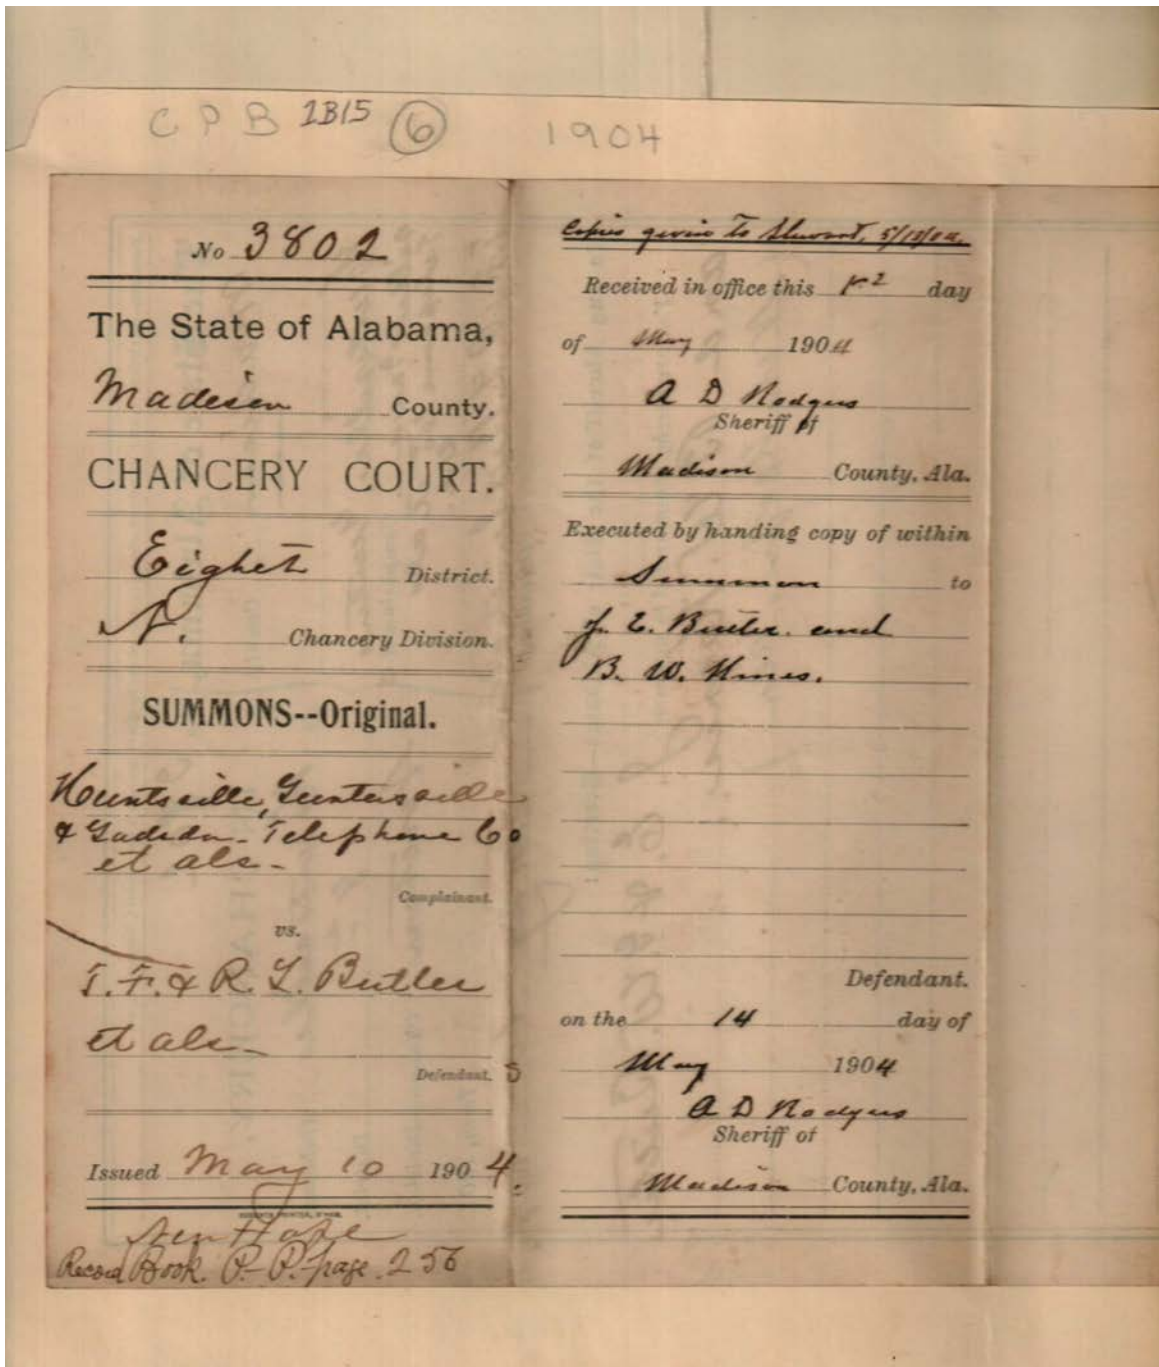 C P B 2B15 6 1904
No 3802
The State of Alabama,
Madison County.
CHANCERY COURT.
Eighet District.
N. Chancery Division.
SUMMONS--Original.
Huntsville, Guntersville
& Gadsden Telephone Co
et als -
Complainant.
vs.
T. F. & R. L. Butler
et als -
Defendant. s
Issued May 10 1904.
New Hope
Record Book. P.-P. page. 256
Copies given to 5/10/04.
Received in office this day
of May 1904
A D Rodgers
Sheriff of
Madison County, Ala.
Executed by handing copy of within
Summon to
E. Butler and
B. W. Hines.
Defendant.
on the 14 day of
May 1904
A D Rodgers
Sheriff of
Madison County, Ala.